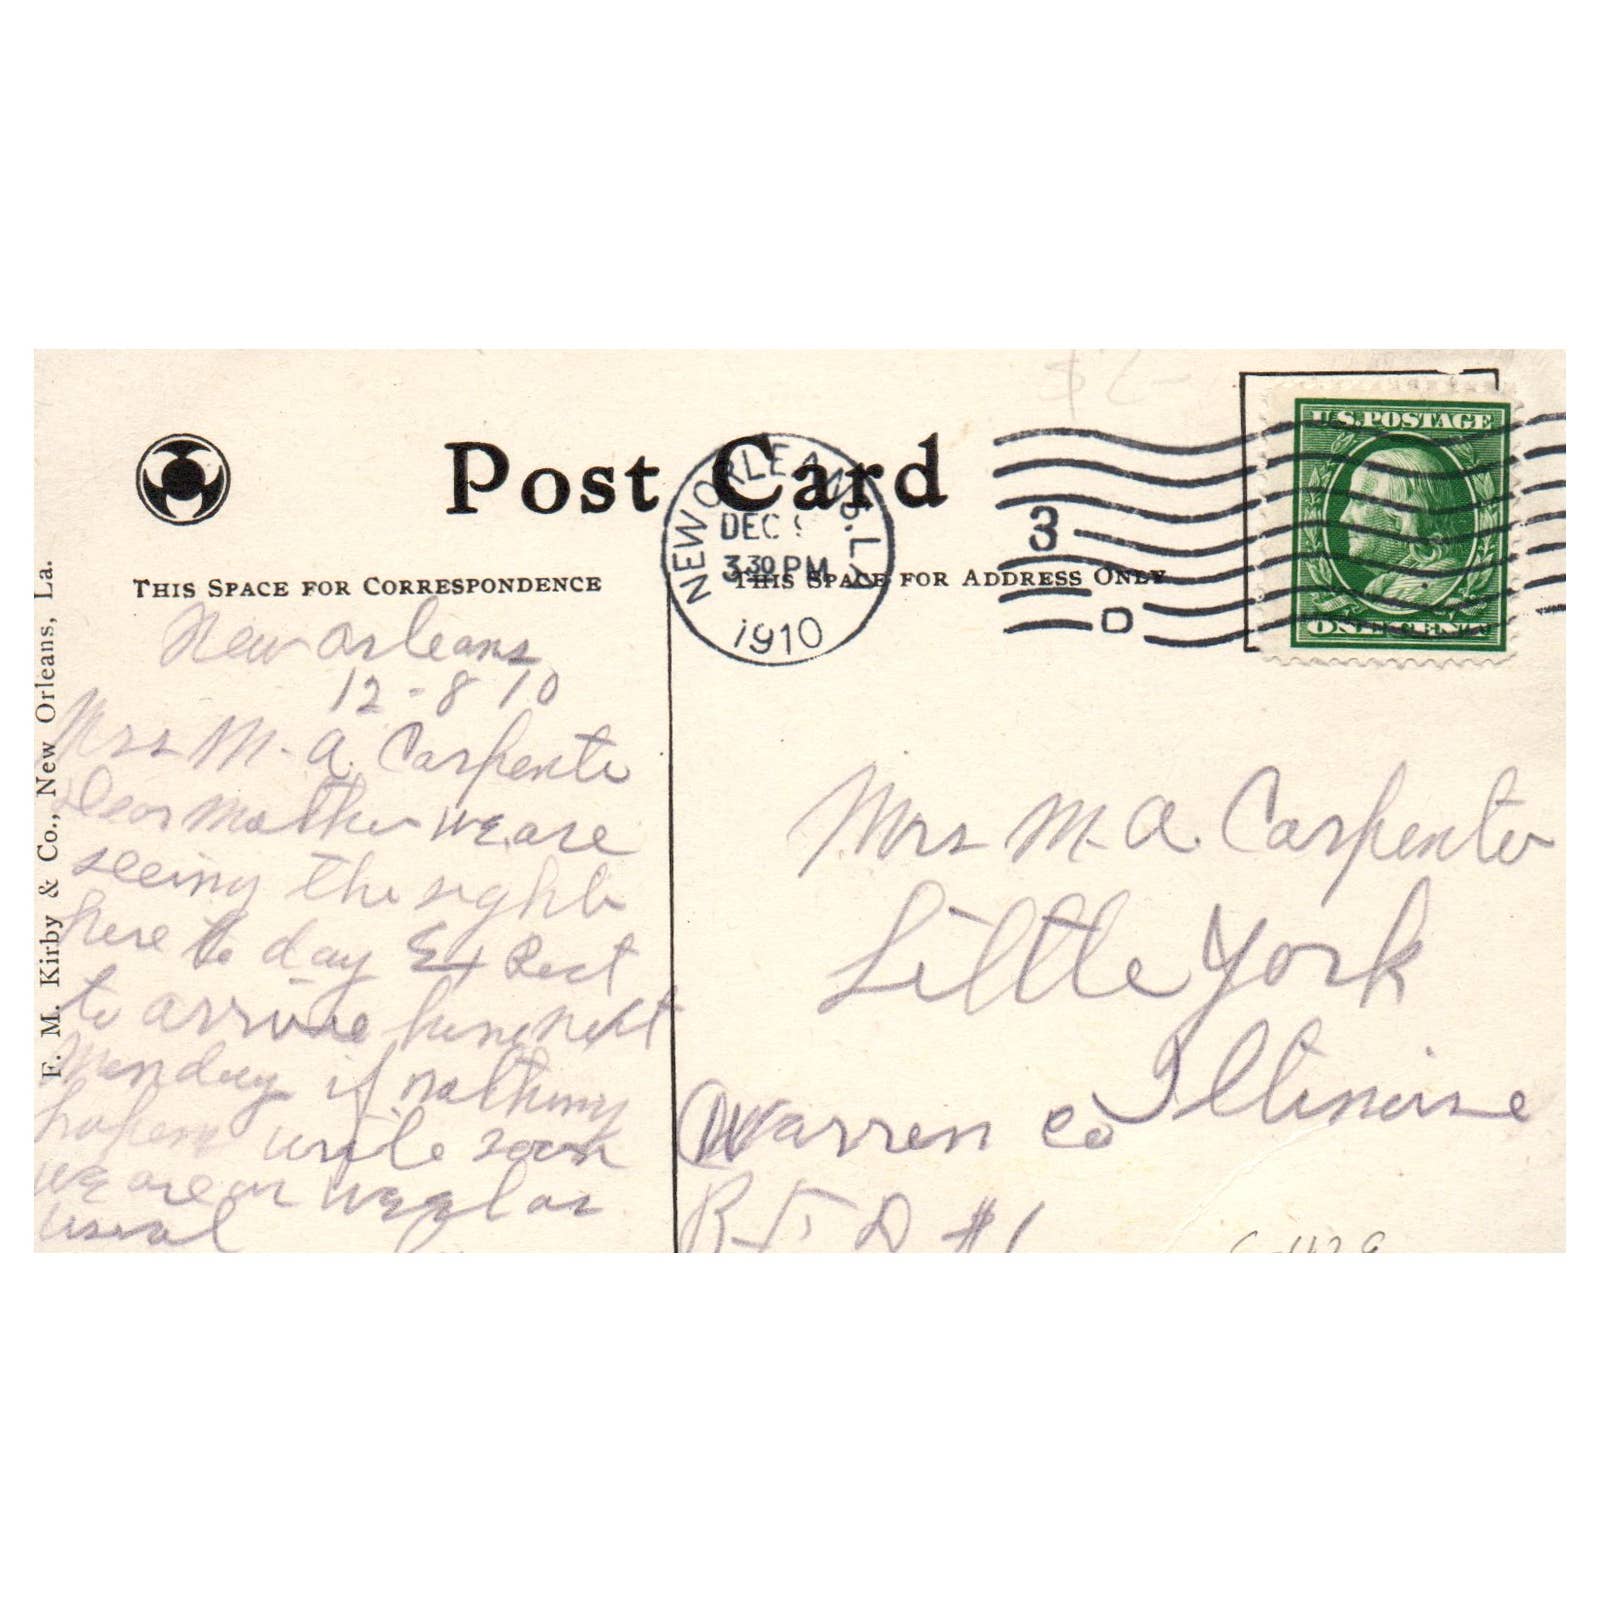 $2-
Post Card
THIS SPACE FOR CORRESPONDENCE
THIS SPACE FOR ADDRESS ONLY
F. M. Kirby & Co., New Orleans, La.
NEW ORLEANS, LA.
DEC
3 30 PM
1910
3
D
U.S. POSTAGE
ONE CENT
New Orleans
12-8 10
Mrs M. A. Carpenter
Dear Mother we are
seeing the sights
here to day Ex Pect
to arrive home next
Monday if nothing
hapens write soon
we are well as
usual
Mrs M. A. Carpenter
Little York
Illinoise
Warren Co
R F D #1